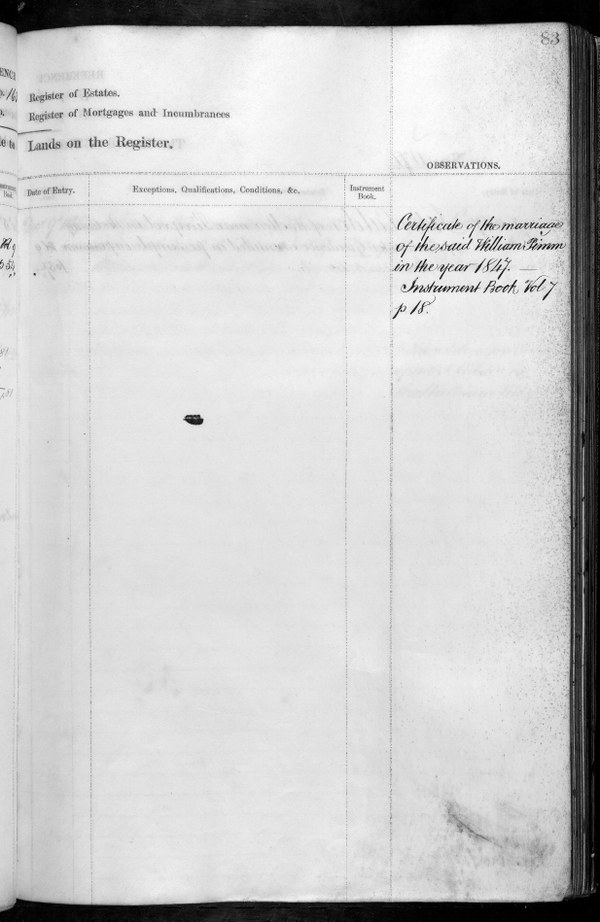 83
Register of Estates.
Register of Mortgages and Incumbrances
Lands on the Register.
OBSERVATIONS.
Date of Entry.
Exceptions, Qualifications, Conditions, &c.
Instrument
Book.
Certificate of the marriage
of the said William Pimm
in the year 1847. —
Instrument Book Vol 7
p 18.